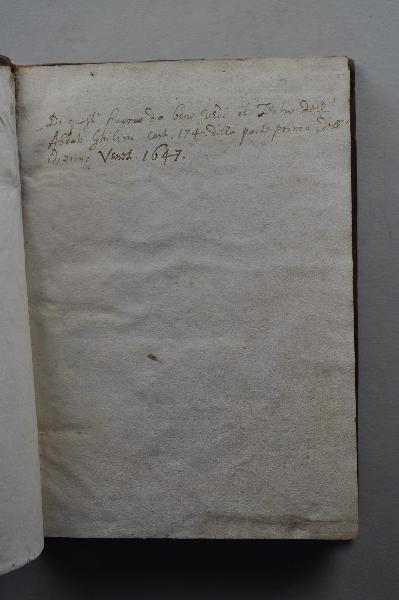 Di questi huomo da bene vedi il Teatro dell'
Abbate Ghilini cart. 174. della parte prima, dell'
Venet. 1647.